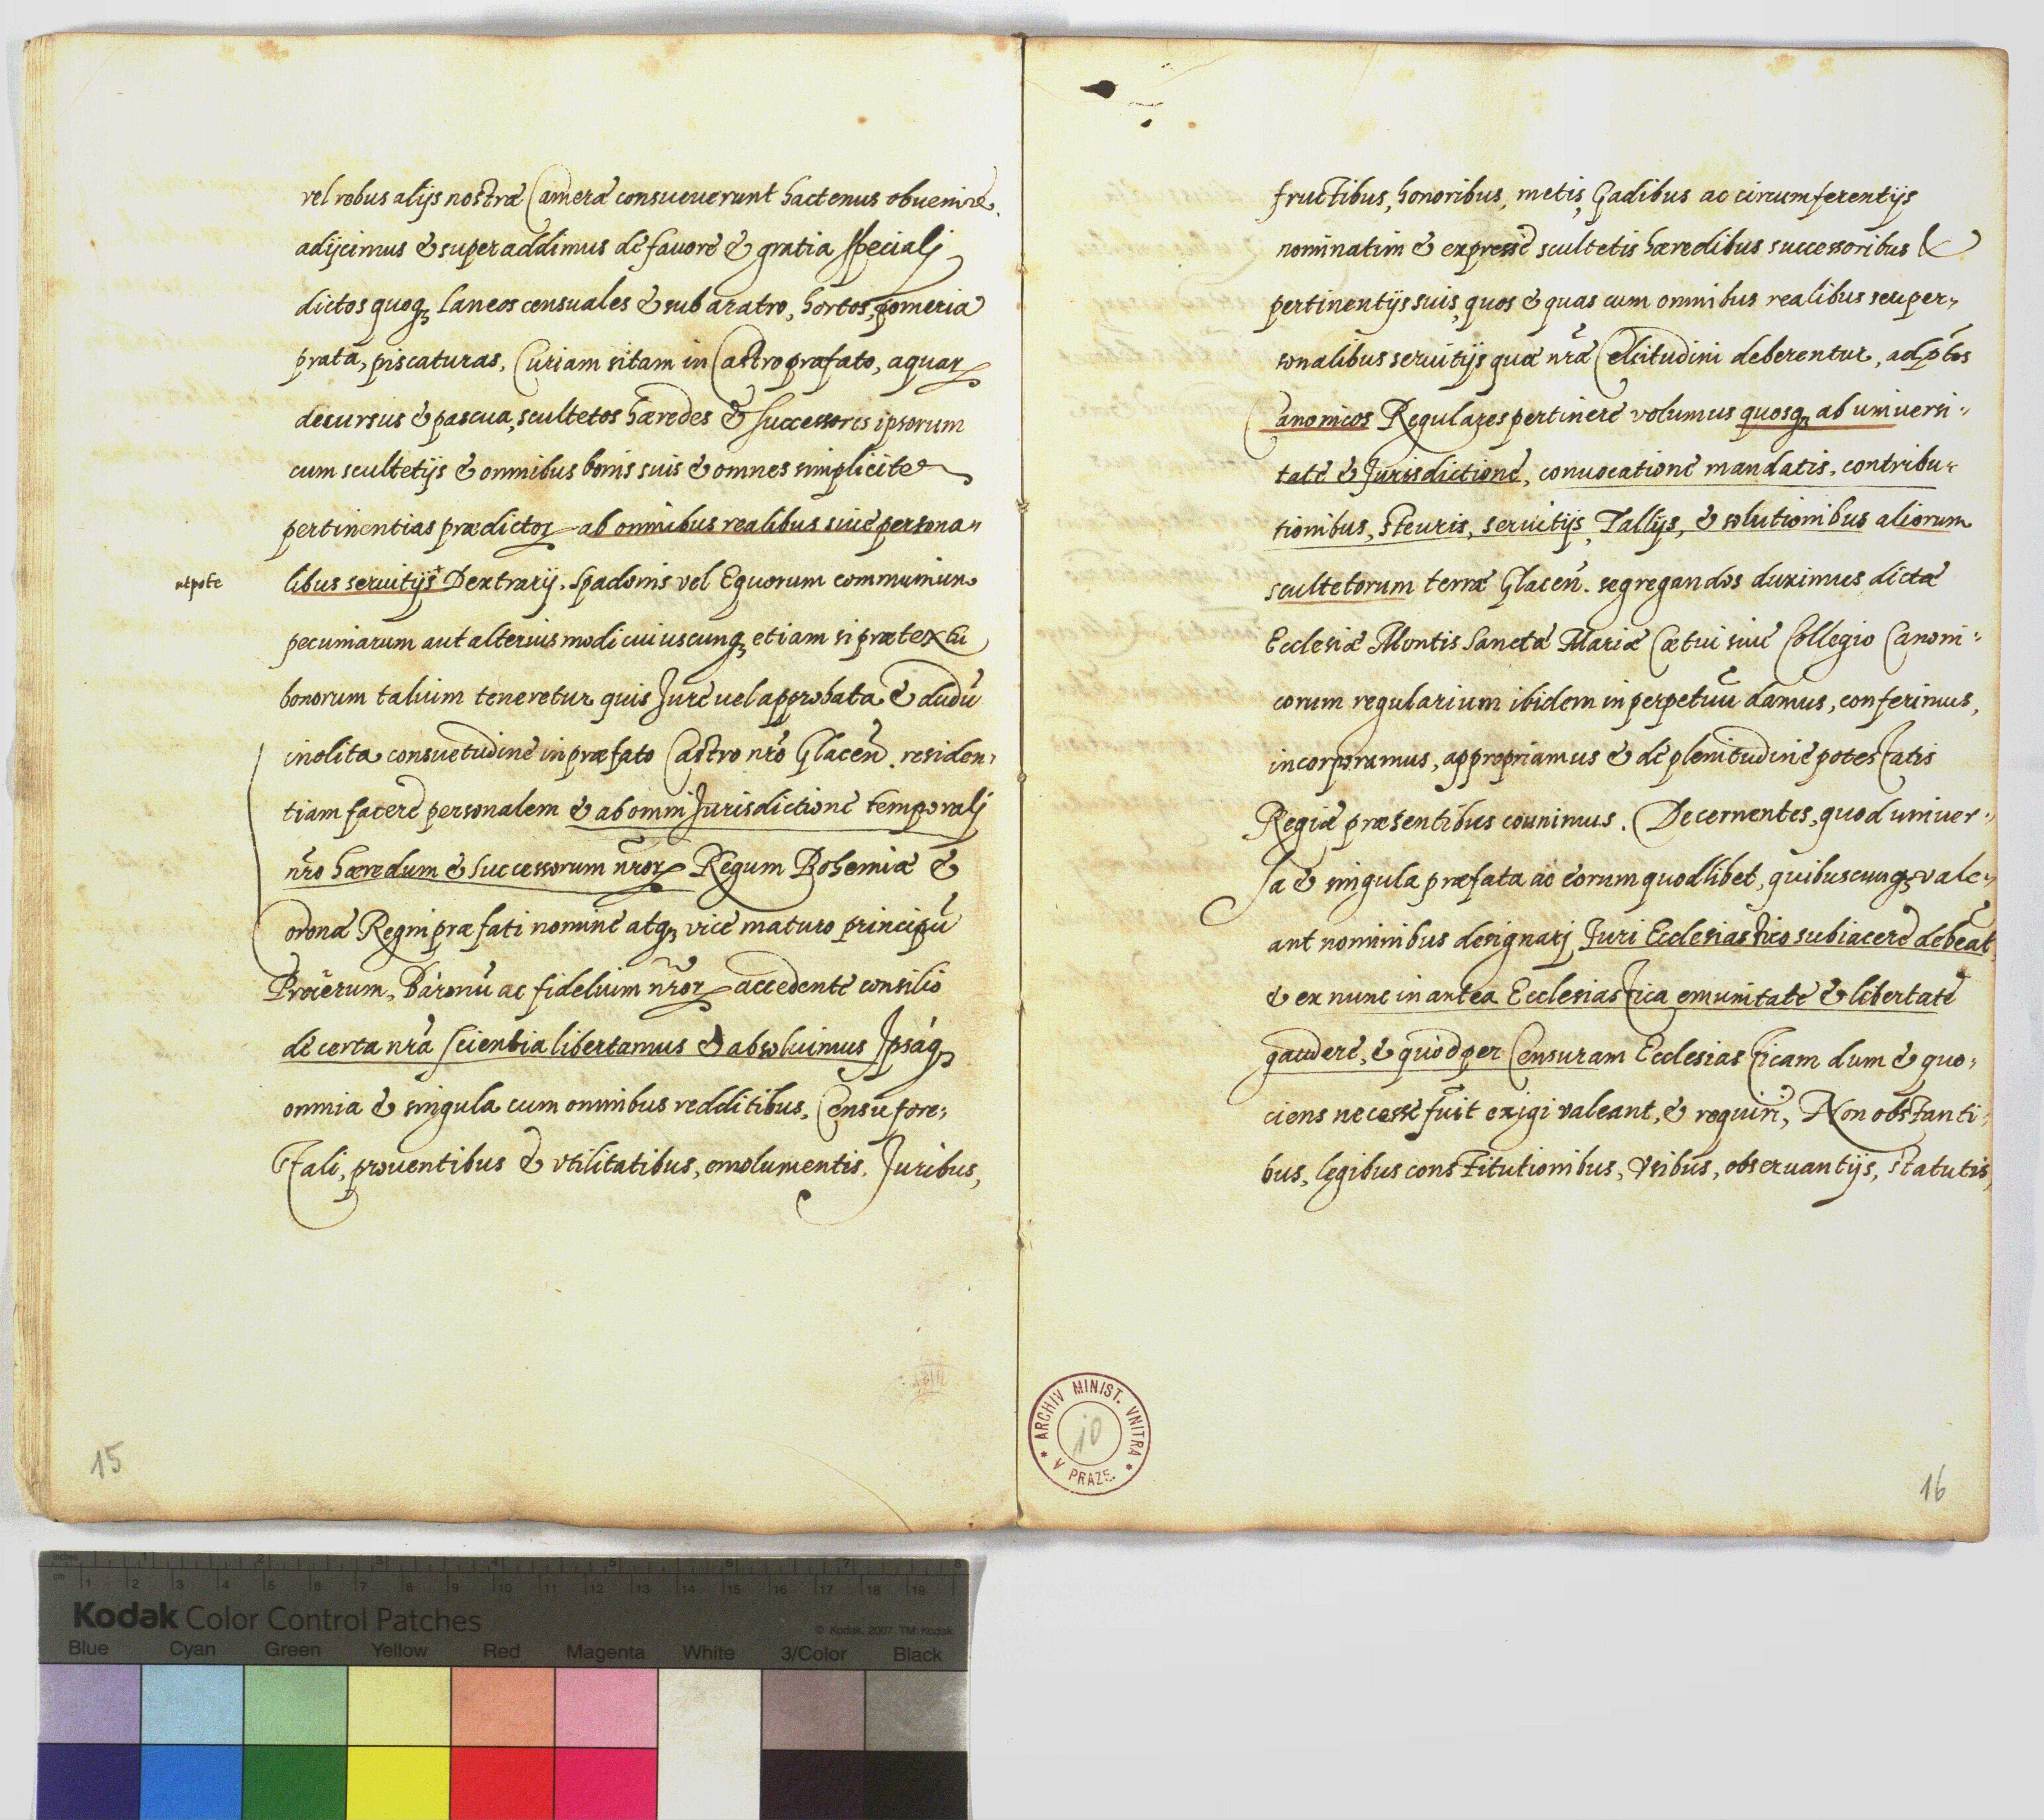 vel rebus alijs nostræ Cameræ consueuerunt hactenus obuenire,
adijcimus & superaddimus de fauore & gratia specialj
dictos quoq₃ laneos censuales & sub aratro, hortos, pomeria
prata, piscaturas, Curiam sitam in Castro præfato, aquarꝝ
decursus & pascua, scultetos hæredes & successores ipsorum
cum scultetijs & omnibus bonis suis & omnes simpliciter
pertinentias prædictoꝝ ab omnibus realibus siue persona„
utpote
libus seruitijs + Dextrarij, Spadonis vel Equorum communium
pecuniarum aut alteriusmodi cuiuscunq₃ etiam si prætextu
bonorum talium teneretur quis Jure uel approbata & dudū
inolita consuetudine in præfato Castro nr̃o Glaceñ. residen„
tiam facere personalem & ab omni Jurisdictione temporalj
nr̃o hæredum & Successorum nr̃orꝝ Regum Bohemiæ &
oronæ Regni præfati nomine atq₃ vice maturo principū
Procerum, Baronū ac fidelium nr̃orꝝ accedente consilio
de certa nr̃a scientia libertamus & absoluimus Jpsáq₃
omnia & singula cum omnibus redditibus, Censu fore„
stali, prouentibus & vtilitatibus, emolumentis, Juribus,
15
fructibus, honoribus, metis, Gadibus ac circumferentijs
nominatim & expresse scultetis hæredibus successoribus &
pertinentijs suis, quos & quas cum omnibus realibus seu per„
sonalibus seruitijs quæ nr̃æ Celsitudini deberentur, ad p̃tos
Canonicos Regulares pertinere volumus quosq₃ ab uniuersi„
tate & Jurisdictione, conuocatione mandatis, contribu„
tionibus, steuris, seruitijs, Tallijs, & solutionibus aliorum
scultetorum terræ Glaceñ. segregandos duximus dictæ
Ecclesiæ Montis Sanctæ Mariæ Cætui siue Collegio Canoni„
corum regularium ibidem in perpetuū damus, conferimus,
incorporamus, appropriamus & de plenitudine potestatis
Regiæ præsentibus counimus. Decernentes, quod vniuer„
sa & singula præfata ac eorum quodlibet, quibuscunq₃ vale„
ant nominibus designarj Juri Ecclesiastico subiacere debeāt
& ex nunc in antea Ecclesiastica emunitate & libertate
gaudere, & quòd per Censuram Ecclesiasticam dum & quo„
ciens necesse fuit exigi valeant, & requiri, Non obstanti„
bus, legibus constitutionibus, Vsibus, obseruantijs, statutis,
16
ARCHIV MINIST. VNITRA
V PRAZE.
10
inches 1 2 3 4 5 6 7 8
cm 1 2 3 4 5 6 7 8 9 10 11 12 13 14 15 16 17 18 19
Kodak Color Control Patches
© Kodak, 2007 TM: Kodak
Blue Cyan Green Yellow Red Magenta White 3/Color Black